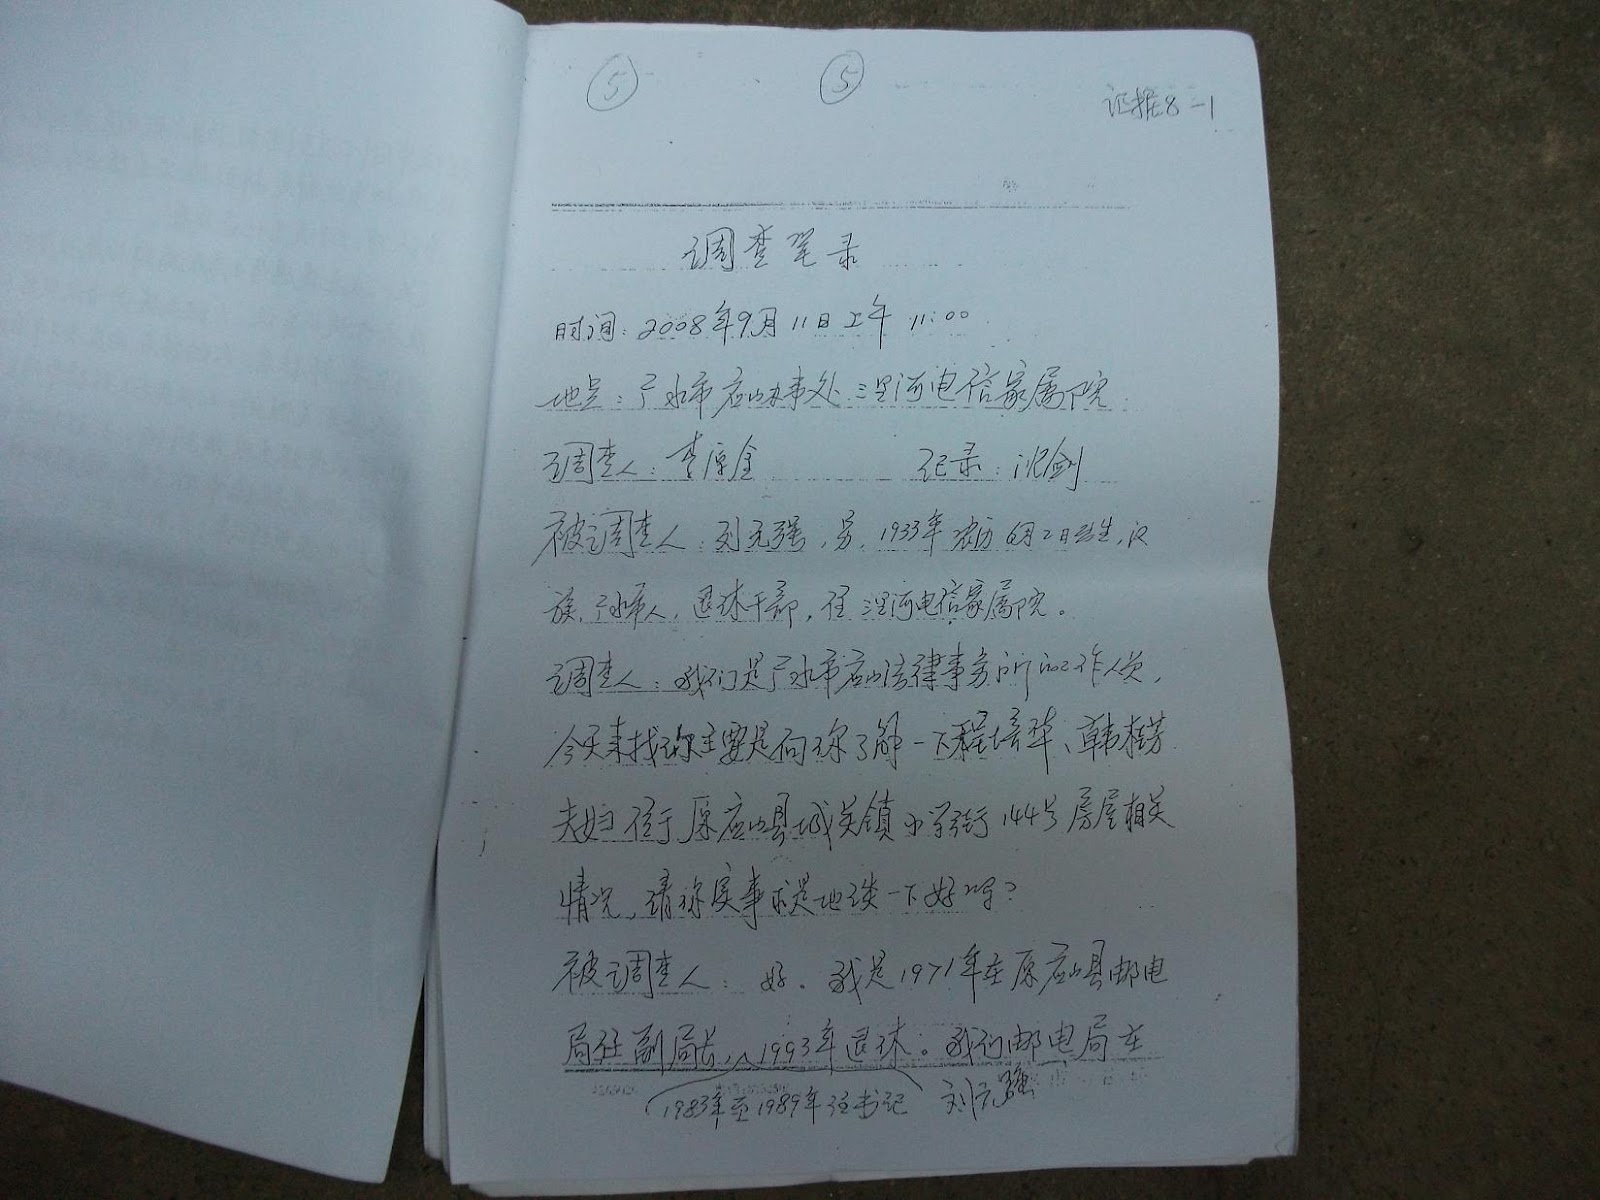 5 5
证据8-1
调查笔录
时间：2008年9月11日上午 11:00
地点：广水市应山办事处三里河电信家属院
调查人：李厚金 记录：沈剑
被调查人：刘元强，男，1933年农历6月2日出生，汉
族，广水市人，退休干部，住三里河电信家属院。
调查人：我们是广水市应山法律事务所的工作人员，
今天来找你主要是向你了解一下程培华、韩桂芳
夫妇住于原应山县城关镇小学街144号房屋相关
情况，请你实事求是地谈一下好吗？
被调查人：好。我是1971年在原应山县邮电
局任副局长，1993年退休。我们邮电局在
1983年至1989年任书记 刘元强